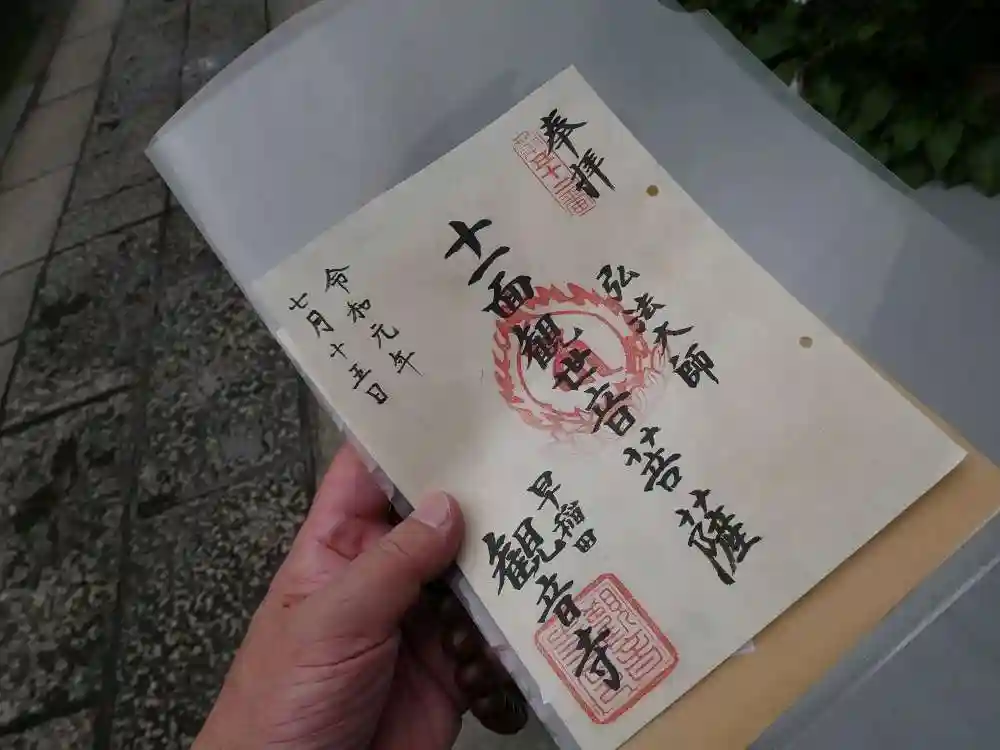 奉拝
弘法大師
十一面観世音菩薩
早稲田
観音寺
令和元年
七月十五日